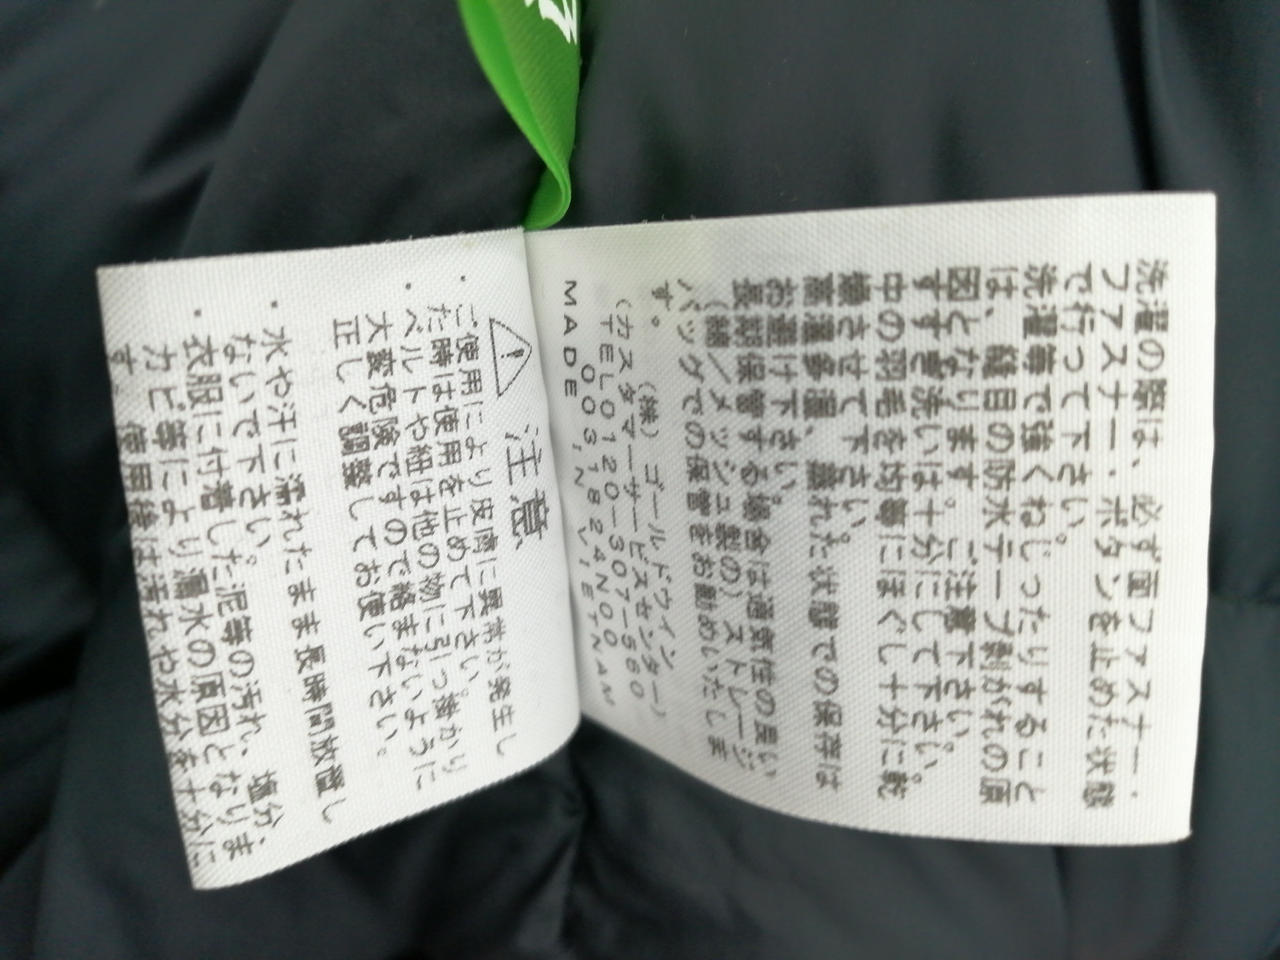 洗濯の際は、必ず面ファスナー・
ファスナー・ボタンを止めた状態
で行って下さい。
洗濯等で強くねじったりすること
は、縫目の防水テープ剥がれの原
因となります。ご注意下さい。
すすぎ洗いは十分にして下さい。
中の羽毛を均等にほぐし十分に乾
燥させて下さい。
高温多湿、濡れた状態での保存は
お避け下さい。
長期保管する場合は通気性の良い
(綿/メッシュ製の)ストレージ
バッグでの保管をお勧めいたしま
す。
(株)ゴールドウィン
(カスタマーサービスセンター)
TEL0120-307-560
003,N824N00
MADE IN VIETNAM
⚠ 注意
・ご使用により皮膚に異常が発生し
た時は使用を止めて下さい。
・ベルトや紐は他の物に引っ掛かり
大変危険ですので絡まないように
正しく調整してお使い下さい。
・水や汗に濡れたまま長時間放置し
ないで下さい。
・衣服に付着した泥等の汚れ、塩分、
カビ等により漏水の原因となりま
す。使用後は汚れや水分を十分に